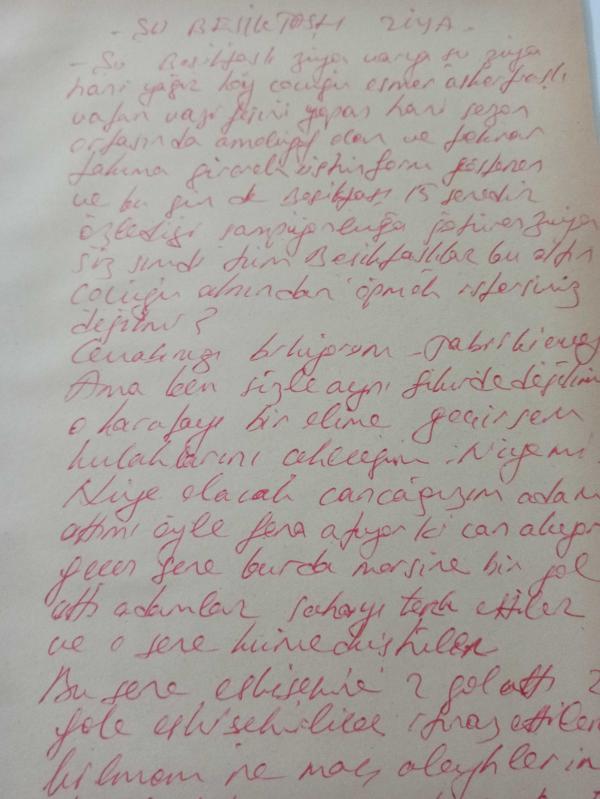 - ŞU BEŞİKTAŞLI ZİYA -
- Şu Beşiktaşlı ziya varya şu ziya
hani yağız köy çocuğu esmer
vatan vazifesini yapan hani sezon
ortasında ameliyat olan ve tekrar
takıma girerek üstün form gösteren
ve bu gün de Beşiktaşı 15 senedir
özlediği şampiyonluğa götüren ziya
siz şimdi tüm Beşiktaşlılar bu altın
çocuğu alnından öpmek istersiniz
değilmi?
Cevabınızı biliyorum - Tabiki evet
Ama ben sizle aynı fikirde değilim
o karatayı bir elime geçirsem
kulaklarını çekeceğim. Niyemi
Niye olacak cancağızım adam
attımı öyle fena atıyor ki can alıyor
geçen sene burda mersine bir gol
attı adamlar sahayı terk ettiler
ve o sene küme düştüler
Bu sene eskişehire 2 gol attı 2
gole eskişehirliler itiraz ettiler
bilmem ne maç aleyhlerin